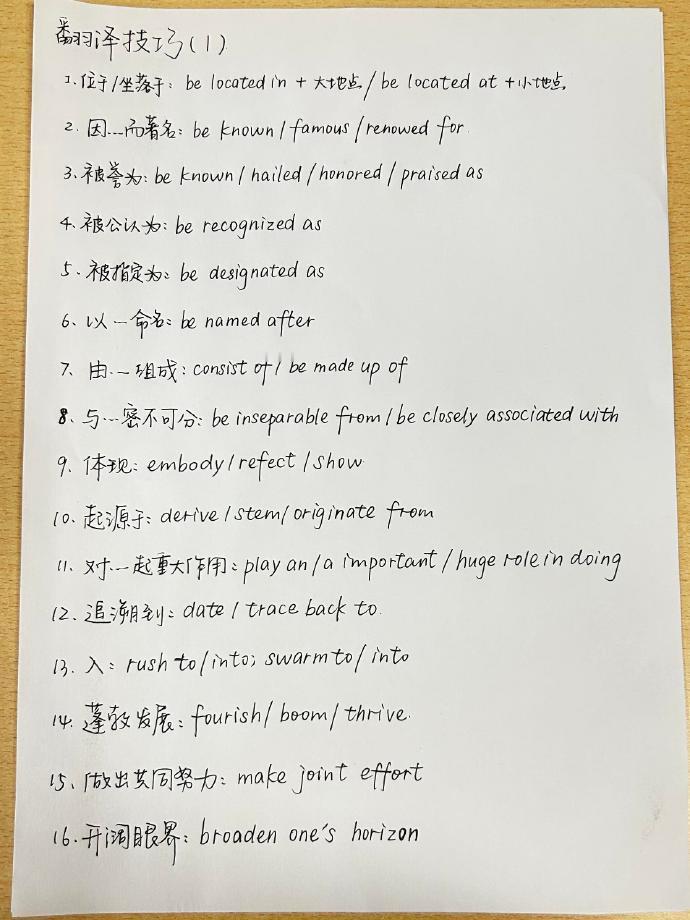 翻译技巧(1)
1、位于/坐落于: be located in + 大地点/be located at +小地点
2、因...而著名: be known/famous/renowed for
3、被誉为: be known/hailed/honored/praised as
4、被公认为: be recognized as
5、被指定为: be designated as
6、以一命名: be named after
7、由...一组成: consist of/be made up of
8、与...密不可分: be inseparable from/be closely associated with
9、体现: embody/refect/show
10、起源于: derive/stem/originate from
11、对...一起重大作用: play an/a important/huge role in doing
12、追溯到: date/trace back to
13、入: rush to/into; swarm to/into
14、蓬勃发展: fourish/boom/thrive
15、做出共同努力: make joint effort
16、开阔眼界: broaden one's horizon